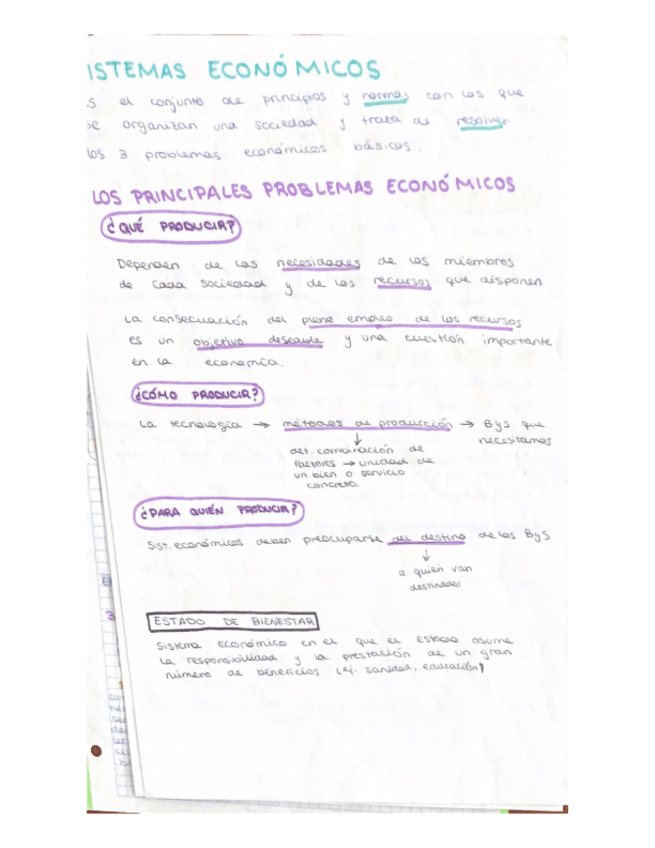 ISTEMAS ECONÓMICOS
s el conjunto de principios y normas con los que
se organizan una sociedad y trata de resolver
los 3 problemas económicos básicos.
LOS PRINCIPALES PROBLEMAS ECONÓMICOS
¿QUÉ PRODUCIR?
Dependen de las necesidades de los miembros
de cada sociedad y de los recursos que disponen
La consecuación del pleno empleo de los recursos
es un objetivo deseable y una cuestión importante
en la economía.
¿CÓMO PRODUCIR?
La tecnología → métodos de producción → ByS que
necesitamos
det. combinación de
factores → unidad de
un bien o servicio
concreto.
¿PARA QUIÉN PRODUCIR?
Sist. económicos deben preocuparse del destino de los ByS
a quien van
destinados
ESTADO DE BIENESTAR
Sistema económico en el que el Estado asume
la responsibilidad y la prestación de un gran
número de beneficios (ej. sanidad, educación)